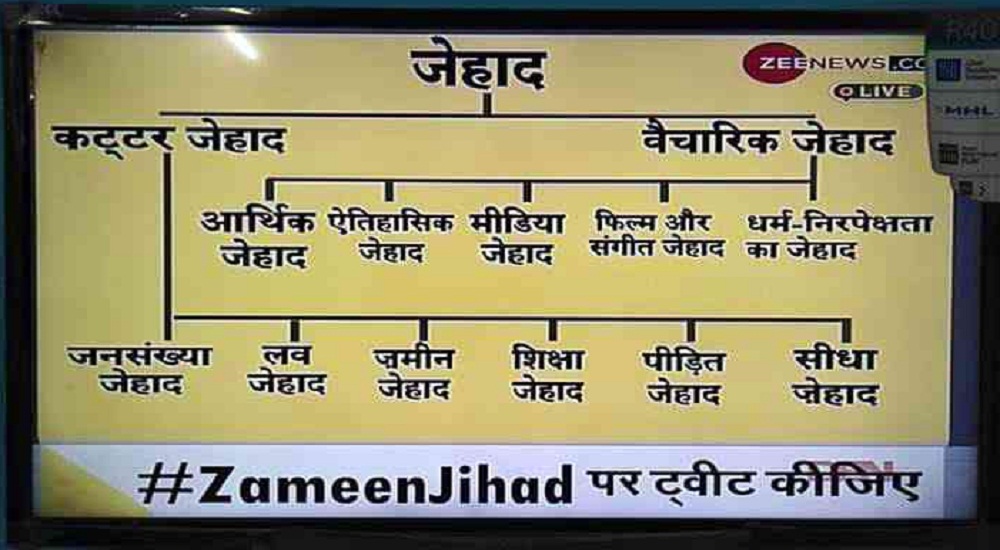 जेहाद
ZEENEWS.CO
LIVE
कट्टर जेहाद
वैचारिक जेहाद
आर्थिक जेहाद
ऐतिहासिक जेहाद
मीडिया जेहाद
फिल्म और संगीत जेहाद
धर्म-निरपेक्षता का जेहाद
जनसंख्या जेहाद
लव जेहाद
ज़मीन जेहाद
शिक्षा जेहाद
पीड़ित जेहाद
सीधा जेहाद
#ZameenJihad पर ट्वीट कीजिए
MHL